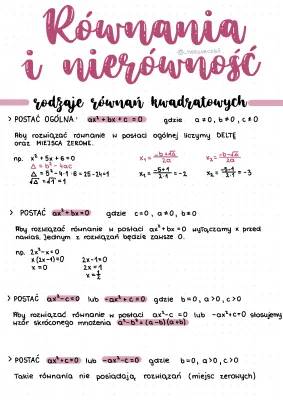 Równania
i nierówność
rodzaje równań kwadratowych
> POSTAĆ OGÓLNA: ax²+bx+c=0 gdzie a≠0, b≠0, c≠0
Aby rozwiązać równanie w postaci ogólnej liczymy DELTĘ
oraz MIEJSCA ZEROWE.
np. x²+5x+6=0
△ = b²-4ac
△ = 5²-4·1·6=25-24=1
√△ = √1 = 1
x₁ = -b+√△/2a
x₁ = -5+1/2·1 = -2
x₂ = -b-√△/2a
x₂ = -5-1/2·1 = -3
> POSTAĆ ax²+bx=0 gdzie c=0, a≠0, b≠0
Aby rozwiązać równanie w postaci ax²+bx=0 wyłączamy x przed
nawias. Jednym z rozwiązań będzie zawsze 0.
np. 2x²-x=0
x(2x-1)=0 2x-1=0
x=0 2x=1
x=1/2
> POSTAĆ ax²-c=0 lub -ax²+c=0 gdzie b=0, a>0, c>0
Aby rozwiązać równanie w postaci ax²-c=0 lub -ax²+c=0 stosujemy
wzór skróconego mnożenia a²-b²=(a-b)(a+b)
> POSTAĆ ax²+c=0 lub -ax²-c=0 gdzie b=0, a>0, c>0
Takie równania nie posiadają rozwiązań (miejsc zerowych)